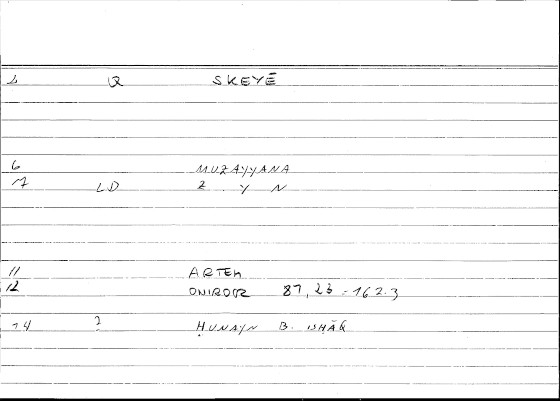 1 Q SKEYĒ
6 MUZAYYANA
17 LD Z . Y N
11 ARTEM
12 ONIROCR 87,23 = 162.3
14 ? ḤUNAYN B. ISḤĀQ